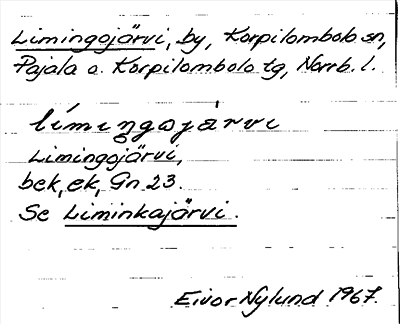 Limingojärvi, by, Korpilombolo sn,
Pajala o. Korpilombolo tg, Norrb. l.
límiŋgojárvi
Limingojärvi,
bek, ek, Gn 23.
Se Liminkajärvi.
Eivor Nylund 1967.